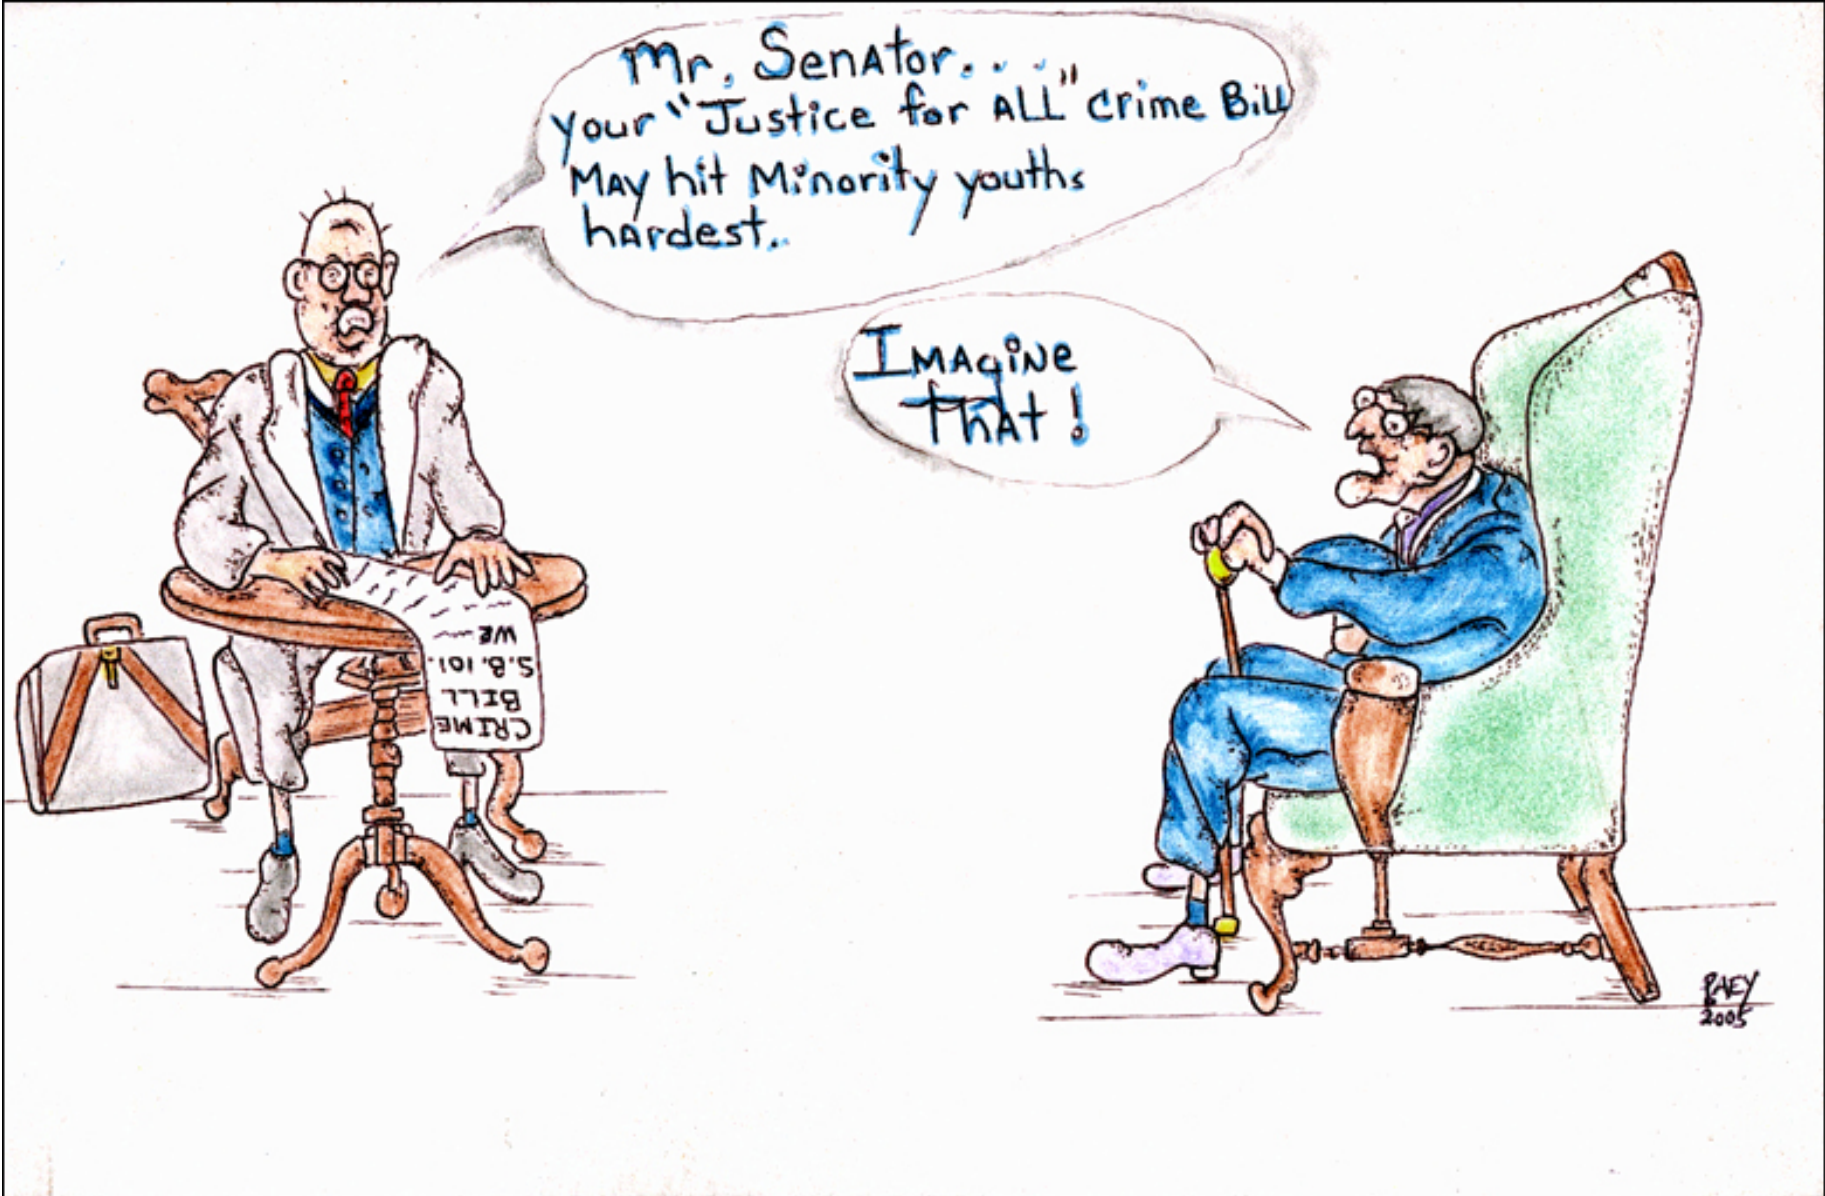 Mr. Senator....
your "Justice for ALL" crime Bill
May hit Minority youths
hardest..
Imagine
that!
WE
S.B. 101.
BILL
CRIME
PAEY
2005